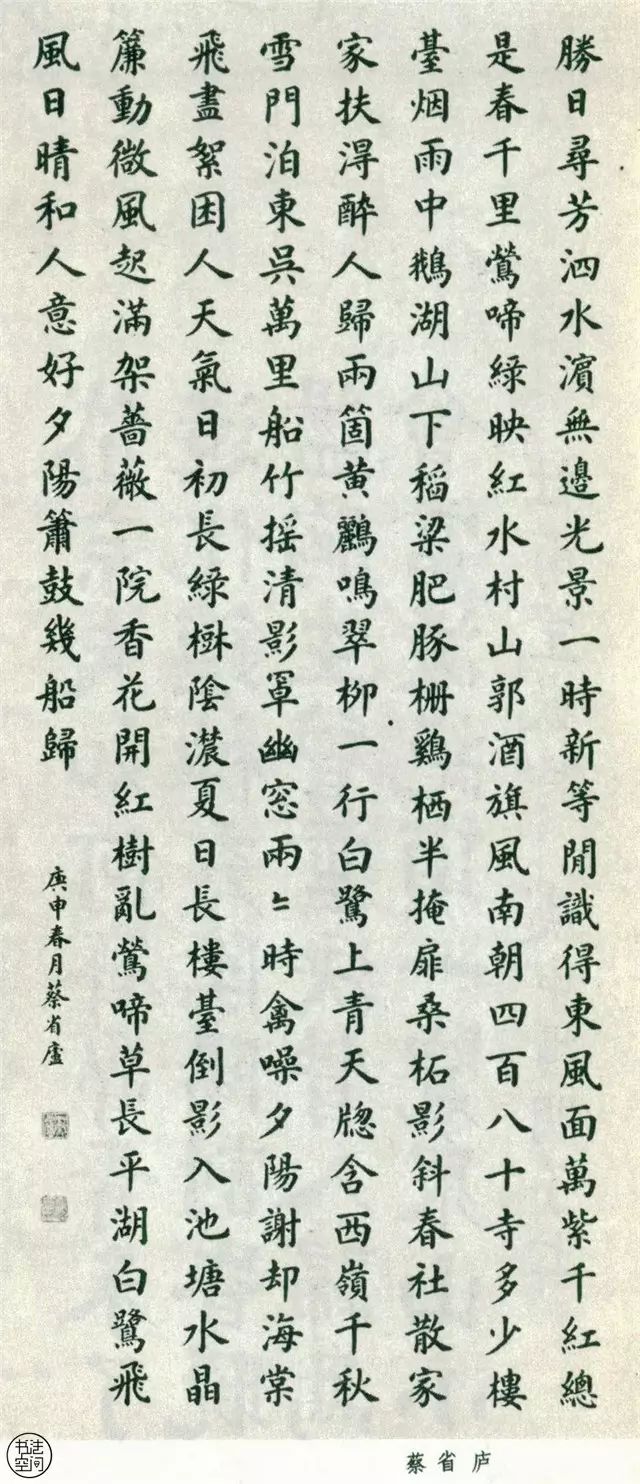 勝日尋芳泗水濱無邊光景一時新等閒識得東風面萬紫千紅總
是春千里鶯啼綠映紅水村山郭酒旗風南朝四百八十寺多少樓
臺烟雨中鵝湖山下稻粱肥豚柵鷄栖半掩扉桑柘影斜春社散家
家扶得醉人歸兩箇黃鸝鳴翠柳一行白鷺上青天牕含西嶺千秋
雪門泊東吳萬里船竹摇清影罩幽窓兩〻時禽噪夕陽謝却海棠
飛盡絮困人天氣日初長綠樹陰濃夏日長樓臺倒影入池塘水晶
簾動微風起滿架薔薇一院香花開紅樹亂鶯啼草長平湖白鷺飛
風日晴和人意好夕陽簫鼓幾船歸
庚申春月蔡省廬
蔡省庐
书法空间